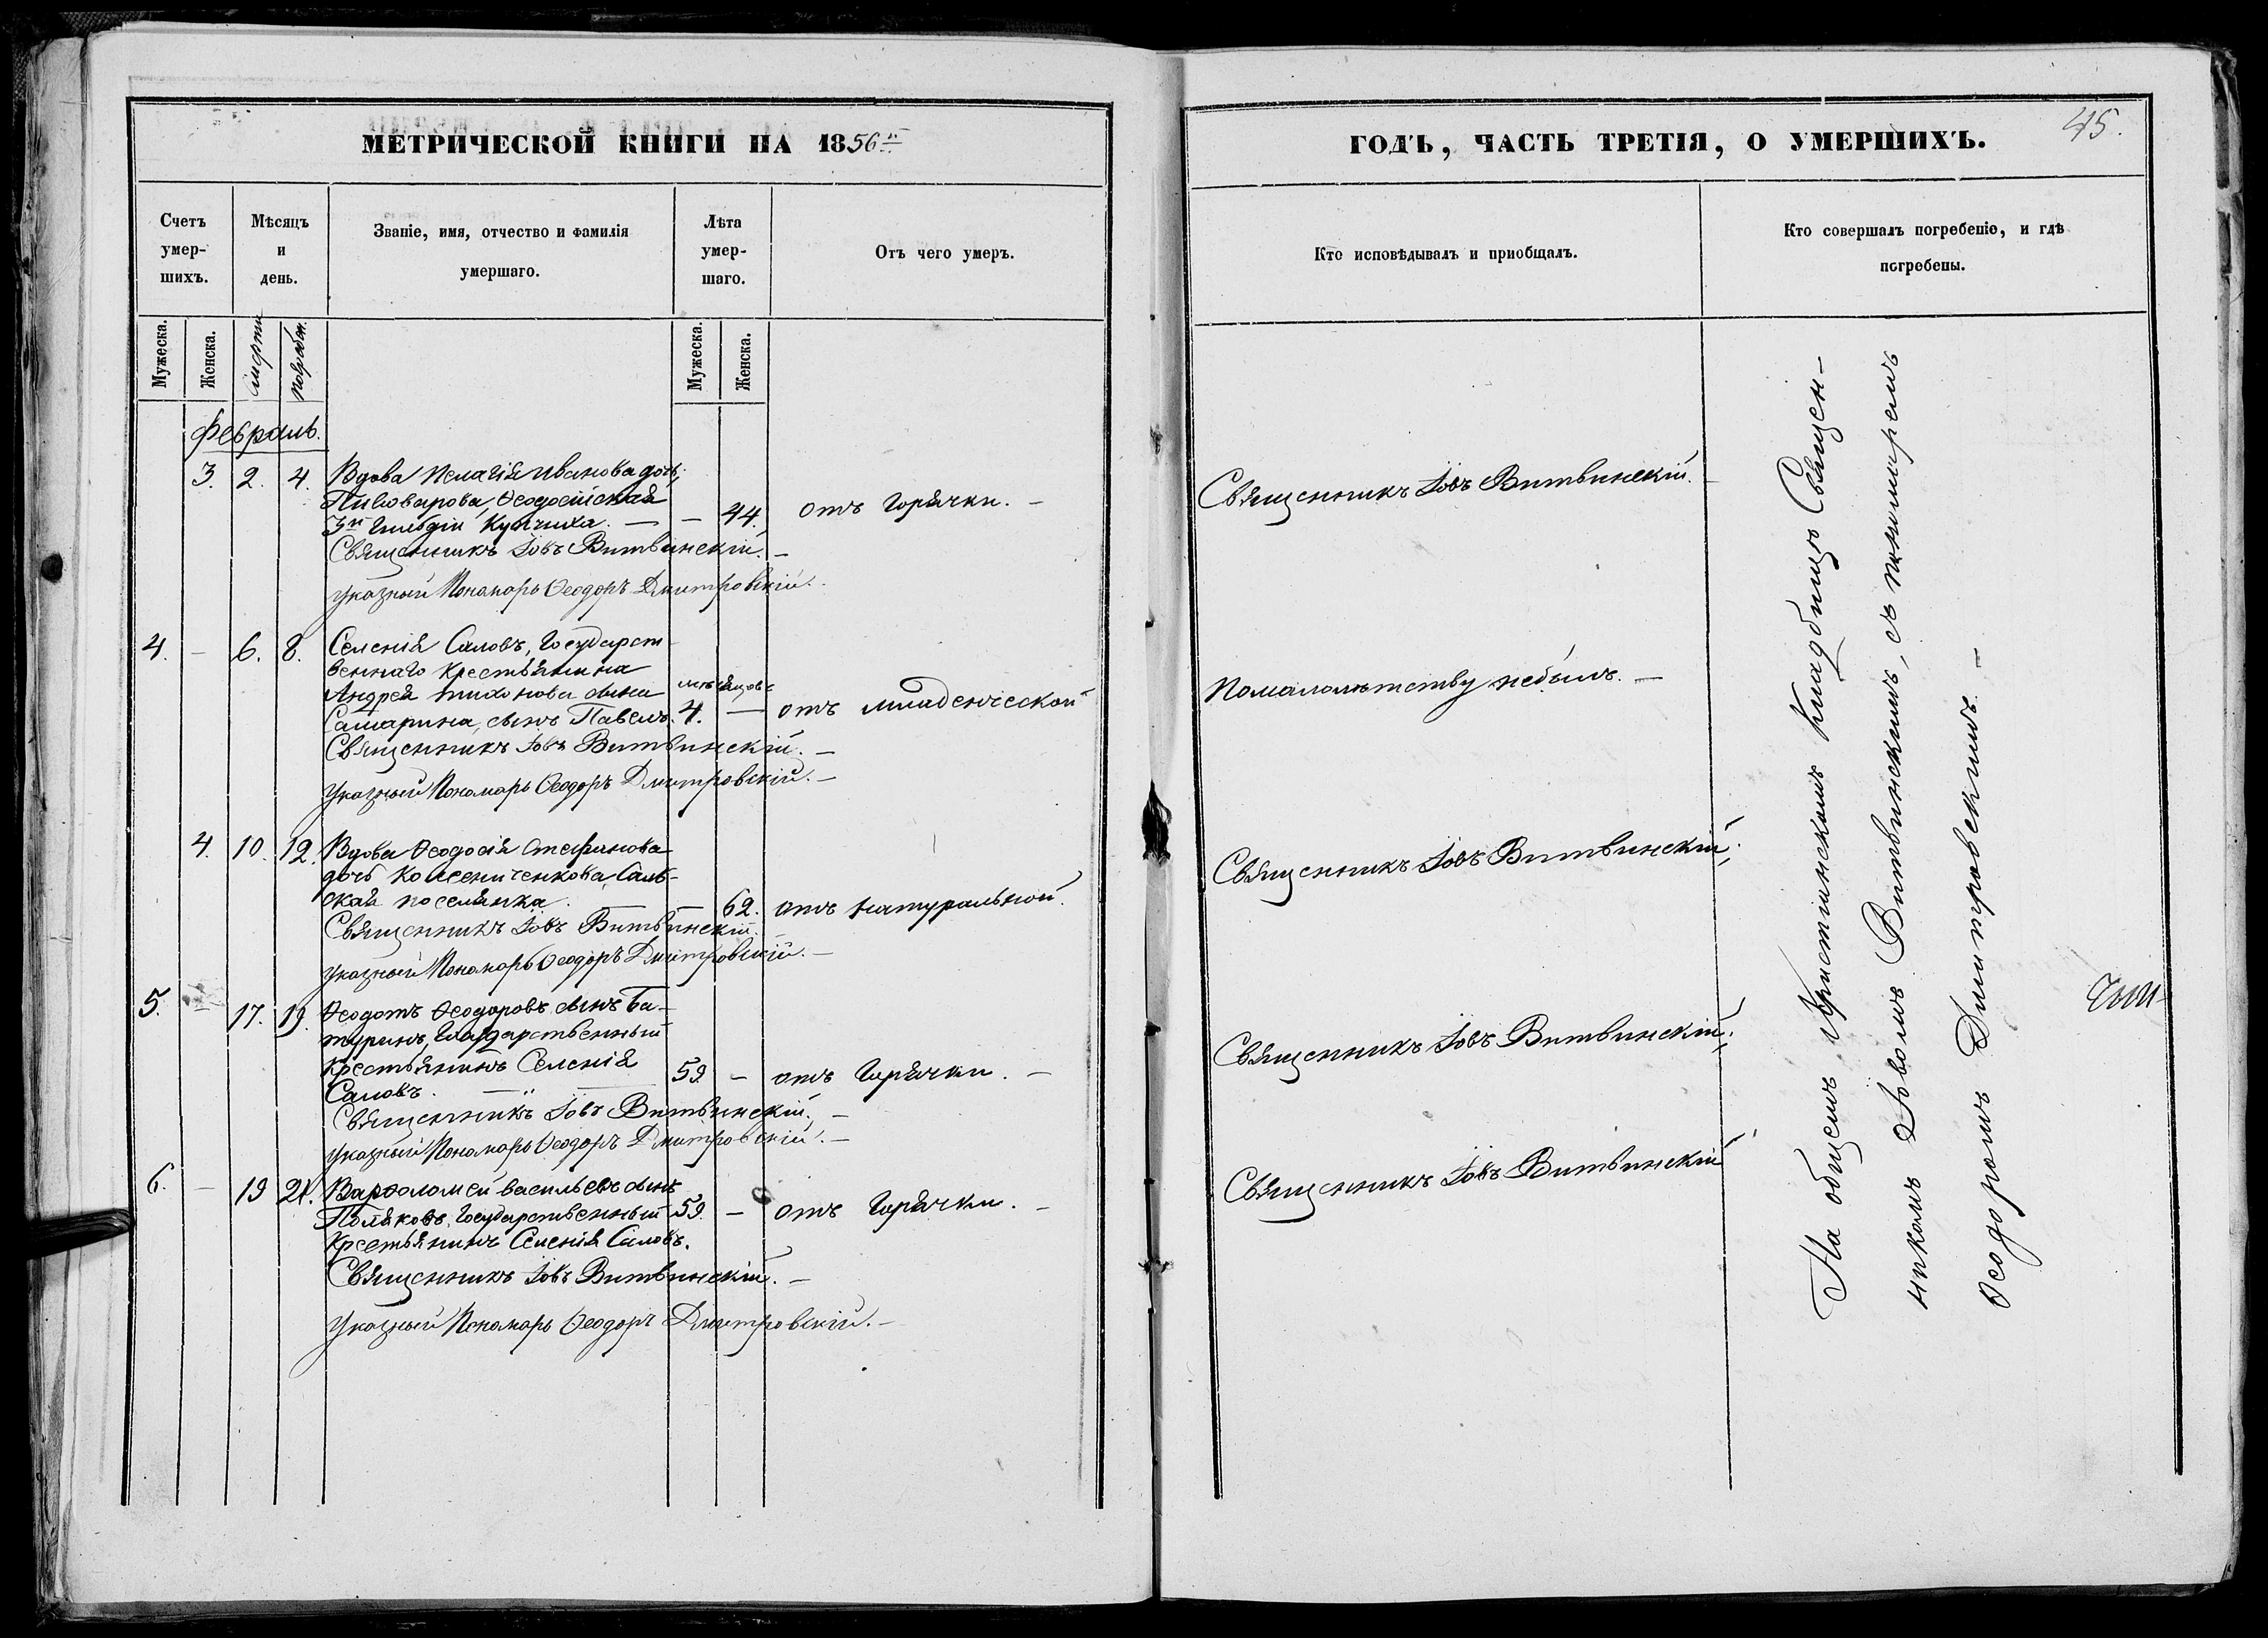 МЕТРИЧЕСКОЙ КНИГИ НА 1856й
Счетъ умер-шихъ.
Мѣсяцъ и день.
Званіе, имя, отчество и фамилія умершаго.
Лѣта умер-шаго.
Отъ чего умеръ.
Мужеска.
Женска.
смерти
погребен.
Мужеска.
Женска.
Февраль.
3. 2. 4. Вдова Пелагія Иванова дочь,
Пивоварова, Ѳеодосійская
3й Гильдіи Купчиха. — — 44. отъ Горячки. —
Священникъ Іовъ Витвинскій. —
указный Пономарь Ѳеодоръ Дмитровскій.
4. — 6. 8. Селенія Саловъ, Государст
веннаго Крестьянина
Андрея Тихонова сына мѣсяцовъ
Самарина, сынъ Павелъ. 4. — отъ младенческой
Священникъ Іовъ Витвинскій. —
указный Пономарь Ѳеодоръ Дмитровскій. —
4. 10. 12. Вдова Ѳеодосія Стефанова
дочь Колесниченкова, Саль-
ская поселянка. — 62. отъ натуральной.
Священникъ Іовъ Витвинскій.
указный Пономарь Ѳеодоръ Дмитровскій. —
5. — 17. 19. Ѳеодотъ Ѳеодоровъ сынъ Ба-
туринъ, Государственный
Крестьянинъ Селенія 59. — отъ Горячки. —
Саловъ. —
Священникъ Іовъ Витвинскій. —
указный Пономарь Ѳеодоръ Дмитровскій. —
6. — 19 21. Варѳоломей Васильевъ сынъ
Поляковъ, Государственный 59. — отъ Горячки. —
Крестьянинъ Селенія Саловъ.
Священникъ Іовъ Витвинскій. —
указный Пономарь Ѳеодоръ Дмитровскій. —
ГОДЪ, ЧАСТЬ ТРЕТІЯ, О УМЕРШИХЪ.
45.
Кто исповѣдывалъ и приобщалъ.
Кто совершалъ погребеніе, и гдѣ погребены.
Священникъ Іовъ Витвинскій.
Помалолѣтству небылъ. —
Священникъ Іовъ Витвинскій.
Священникъ Іовъ Витвинскій.
Священникъ Іовъ Витвинскій
На общемъ Христіанскомъ Кладбищѣ Священ-
никомъ Іовомъ Витвинскимъ, съ пономаремъ
Ѳеодоромъ Димитровскимъ. —